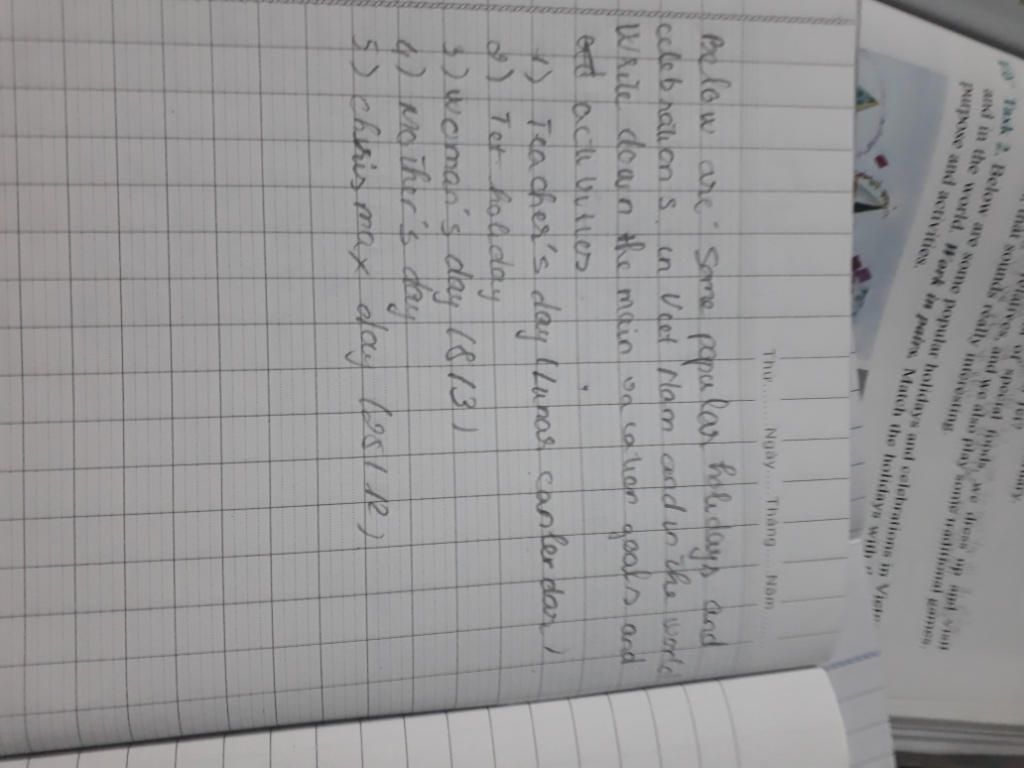 Thứ......... Ngày..... Tháng..... Năm.........
Below are some popular holidays and
celebrations in Viet Nam and in the world
Write down the main vacation goals and
activities
1) Teacher's day (lunar canlerdar)
2) Tet holiday
3) woman's day (8/3)
4) Mother's day
5) chrismax day (25/12)
and this sounds really interesting.
Task 2. Below are some popular holidays and celebrations in Viet
and in the world. Work in pairs. Match the holidays with
purpose and activities.